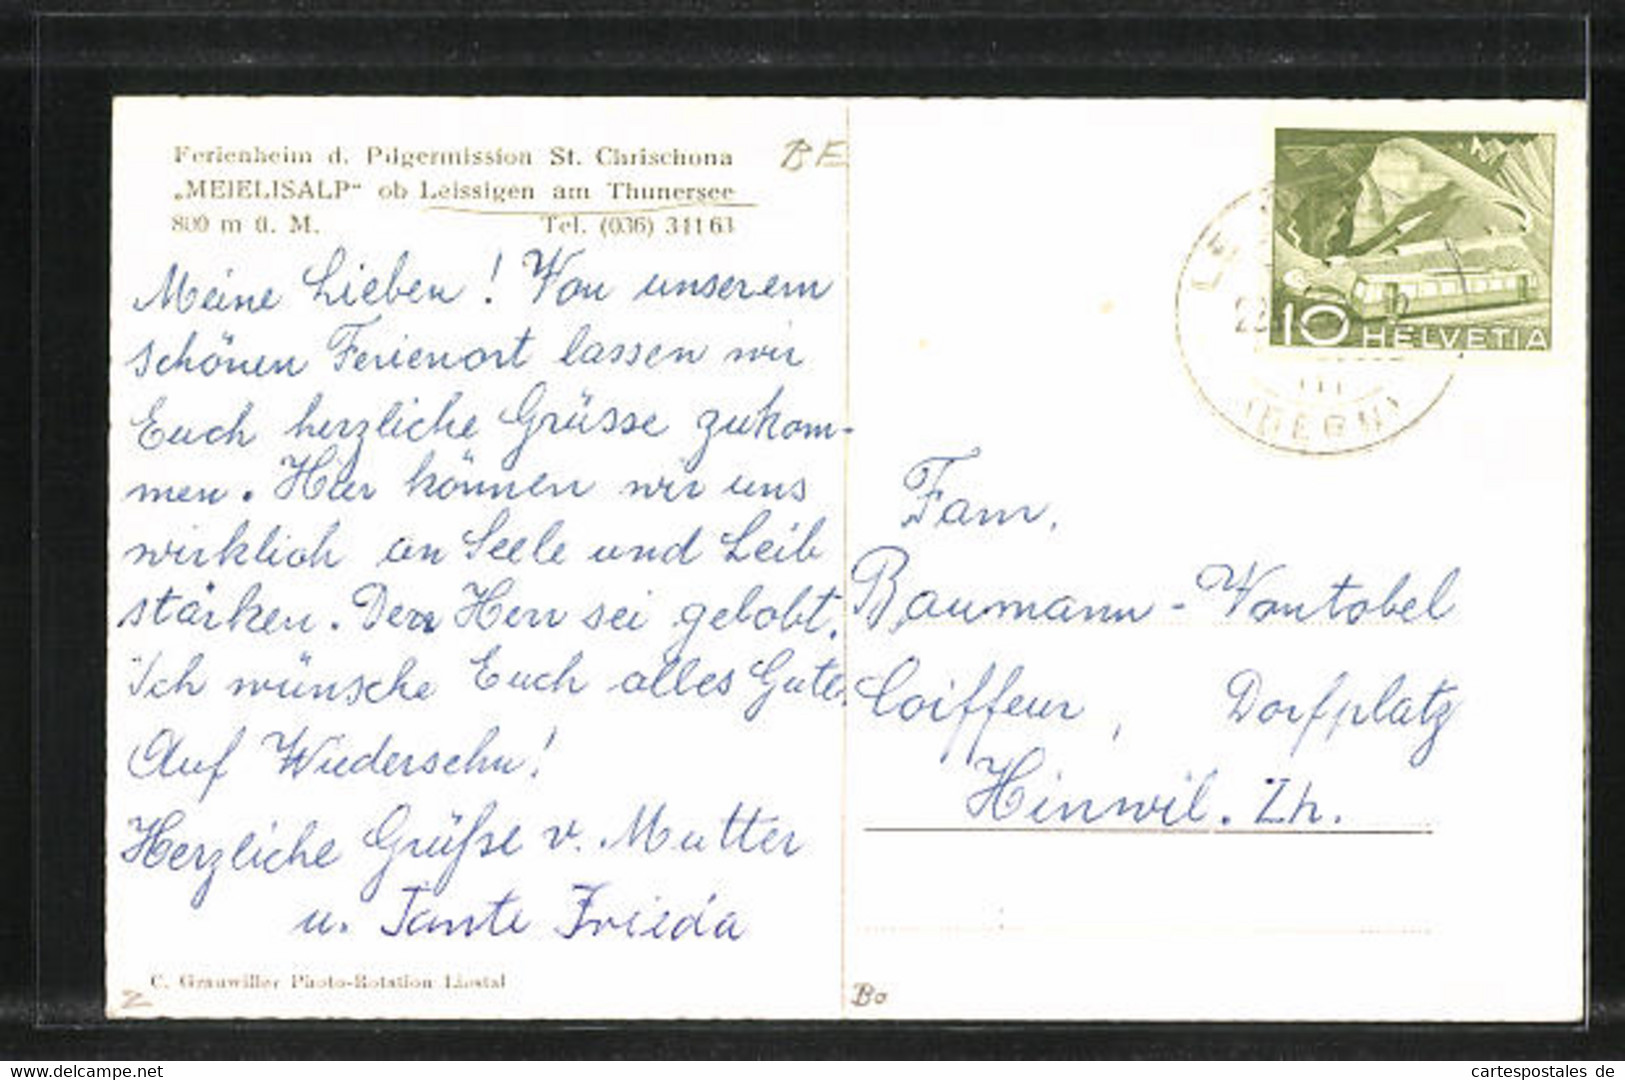 Ferienheim d. Pilgermission St. Chrischona
„MEIELISALP“ ob Leissigen am Thunersee
800 m ü. M. Tel. (036) 341 63
BE
Meine Lieben! Von unserem
schönen Ferienort lassen wir
Euch herzliche Grüsse zukom-
men. Hier können wir uns
wirklich an Seele und Leib
stärken. Dem Herr sei gelobt.
Ich wünsche Euch alles Gute.
Auf Wiedersehn!
Herzliche Grüße v. Mutter
u. Tante Frieda
C. Grauwiller Photo-Rotation Liestal
Z
Bo
10 HELVETIA
(BERN)
Fam.
Baumann - Vontobel
Coiffeur, Dorfplatz
Hinwil. Zh.
www.cartespostales.de